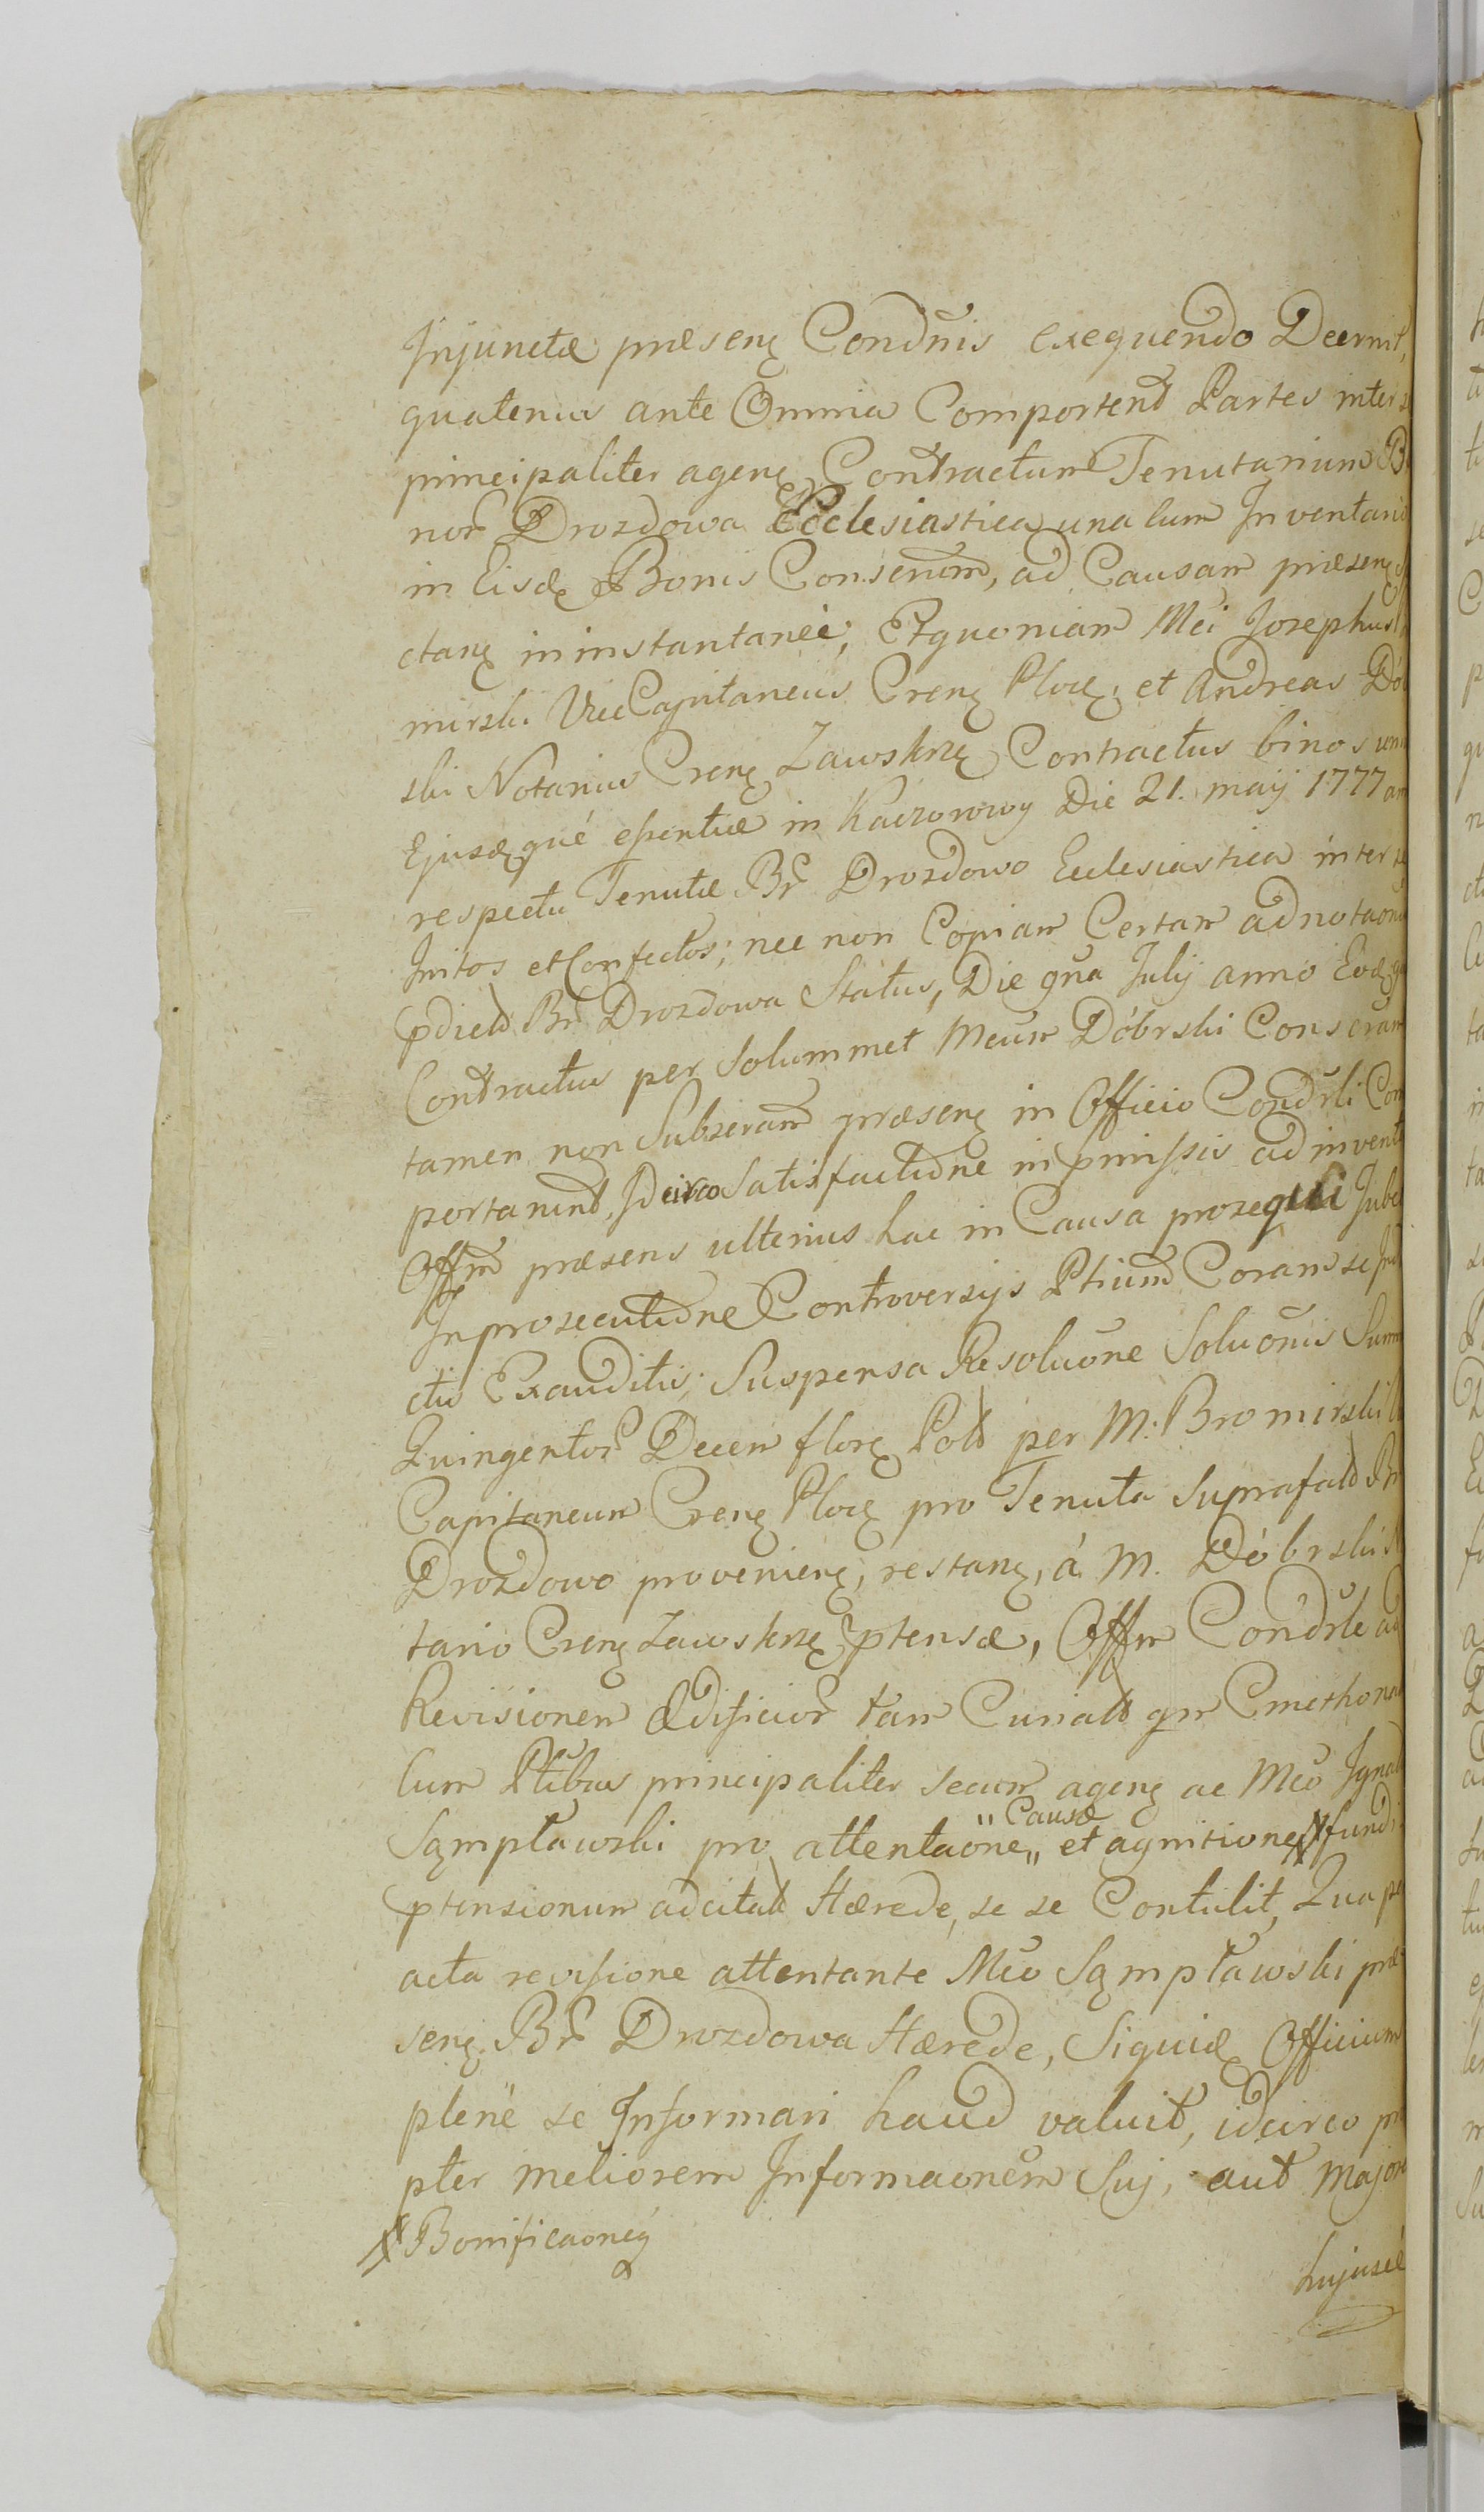 Injunctæ præsenę Condnis exequendo Decrevit,
quatenus ante Omnia Comportent Partes inter s
principaliter agenę Contractum Tenutarium Bo
nor Drozdowa Ecclesiastica una cum Inventario
in Eisdę Bonis Conserum, ad Causam præsenę
ctanę in instantanei, Et quoniam Mci Josephus
mirski ViceCapitaneus Crenę Plocę, et Andreas Dó
ski Notarius Crenę Zawskrzę Contractus binos
Ejusdęqué essentiæ in Kaczorowy Die 21. maij 1777
respectu Tenutæ Br Drozdowo Ecclesiastica inter se
Initos et Confectos; nec non Copiam Certam adnotaonis
pdict Br Drozdowa Status, Die qua Julij anno Eodę
Contractus per Solummet Meum Dóbrski Conseram
tamen non Subseram præsenę in Officio Condrli Com
portarunt, Idcirco Satisfactione in pmissis adinventa
Offm præsens ulterius hac in Causa prosequi Jubet
In prosecutione Controversijs Ptium Coram se
ctis Exauditis; Suspensa Resoluōne Soluōnis Summ
Quingentor Decem florę Pol per M. Bromirski
Capitaneum Crenę Plocę pro Tenuta Suprafat Br
Drozdowo provenienę, restanę, á M. Dóbrski
tario Crenę Zawskrzę ptensæ, Offm Condrle ad
Revisionem Ædificior tam Curial qm Cmethonal
cum Ptibus principaliter secum agenę ac Mco Ignat
Sąmpławski pro attentaōne „ Causæ „ et agnitione # fundi
ptensionum adcitat Hærede, se se Contulit, Qua per
acta revisione attentante Mco Sąmpławski præ
senę Br Drozdowa Hærede, Siquidę Officium
plenè se Informari haud valuit, idcirco pro
pter meliorem Informaonem Suj, aut Major
# Bonificaonę
hujuscé